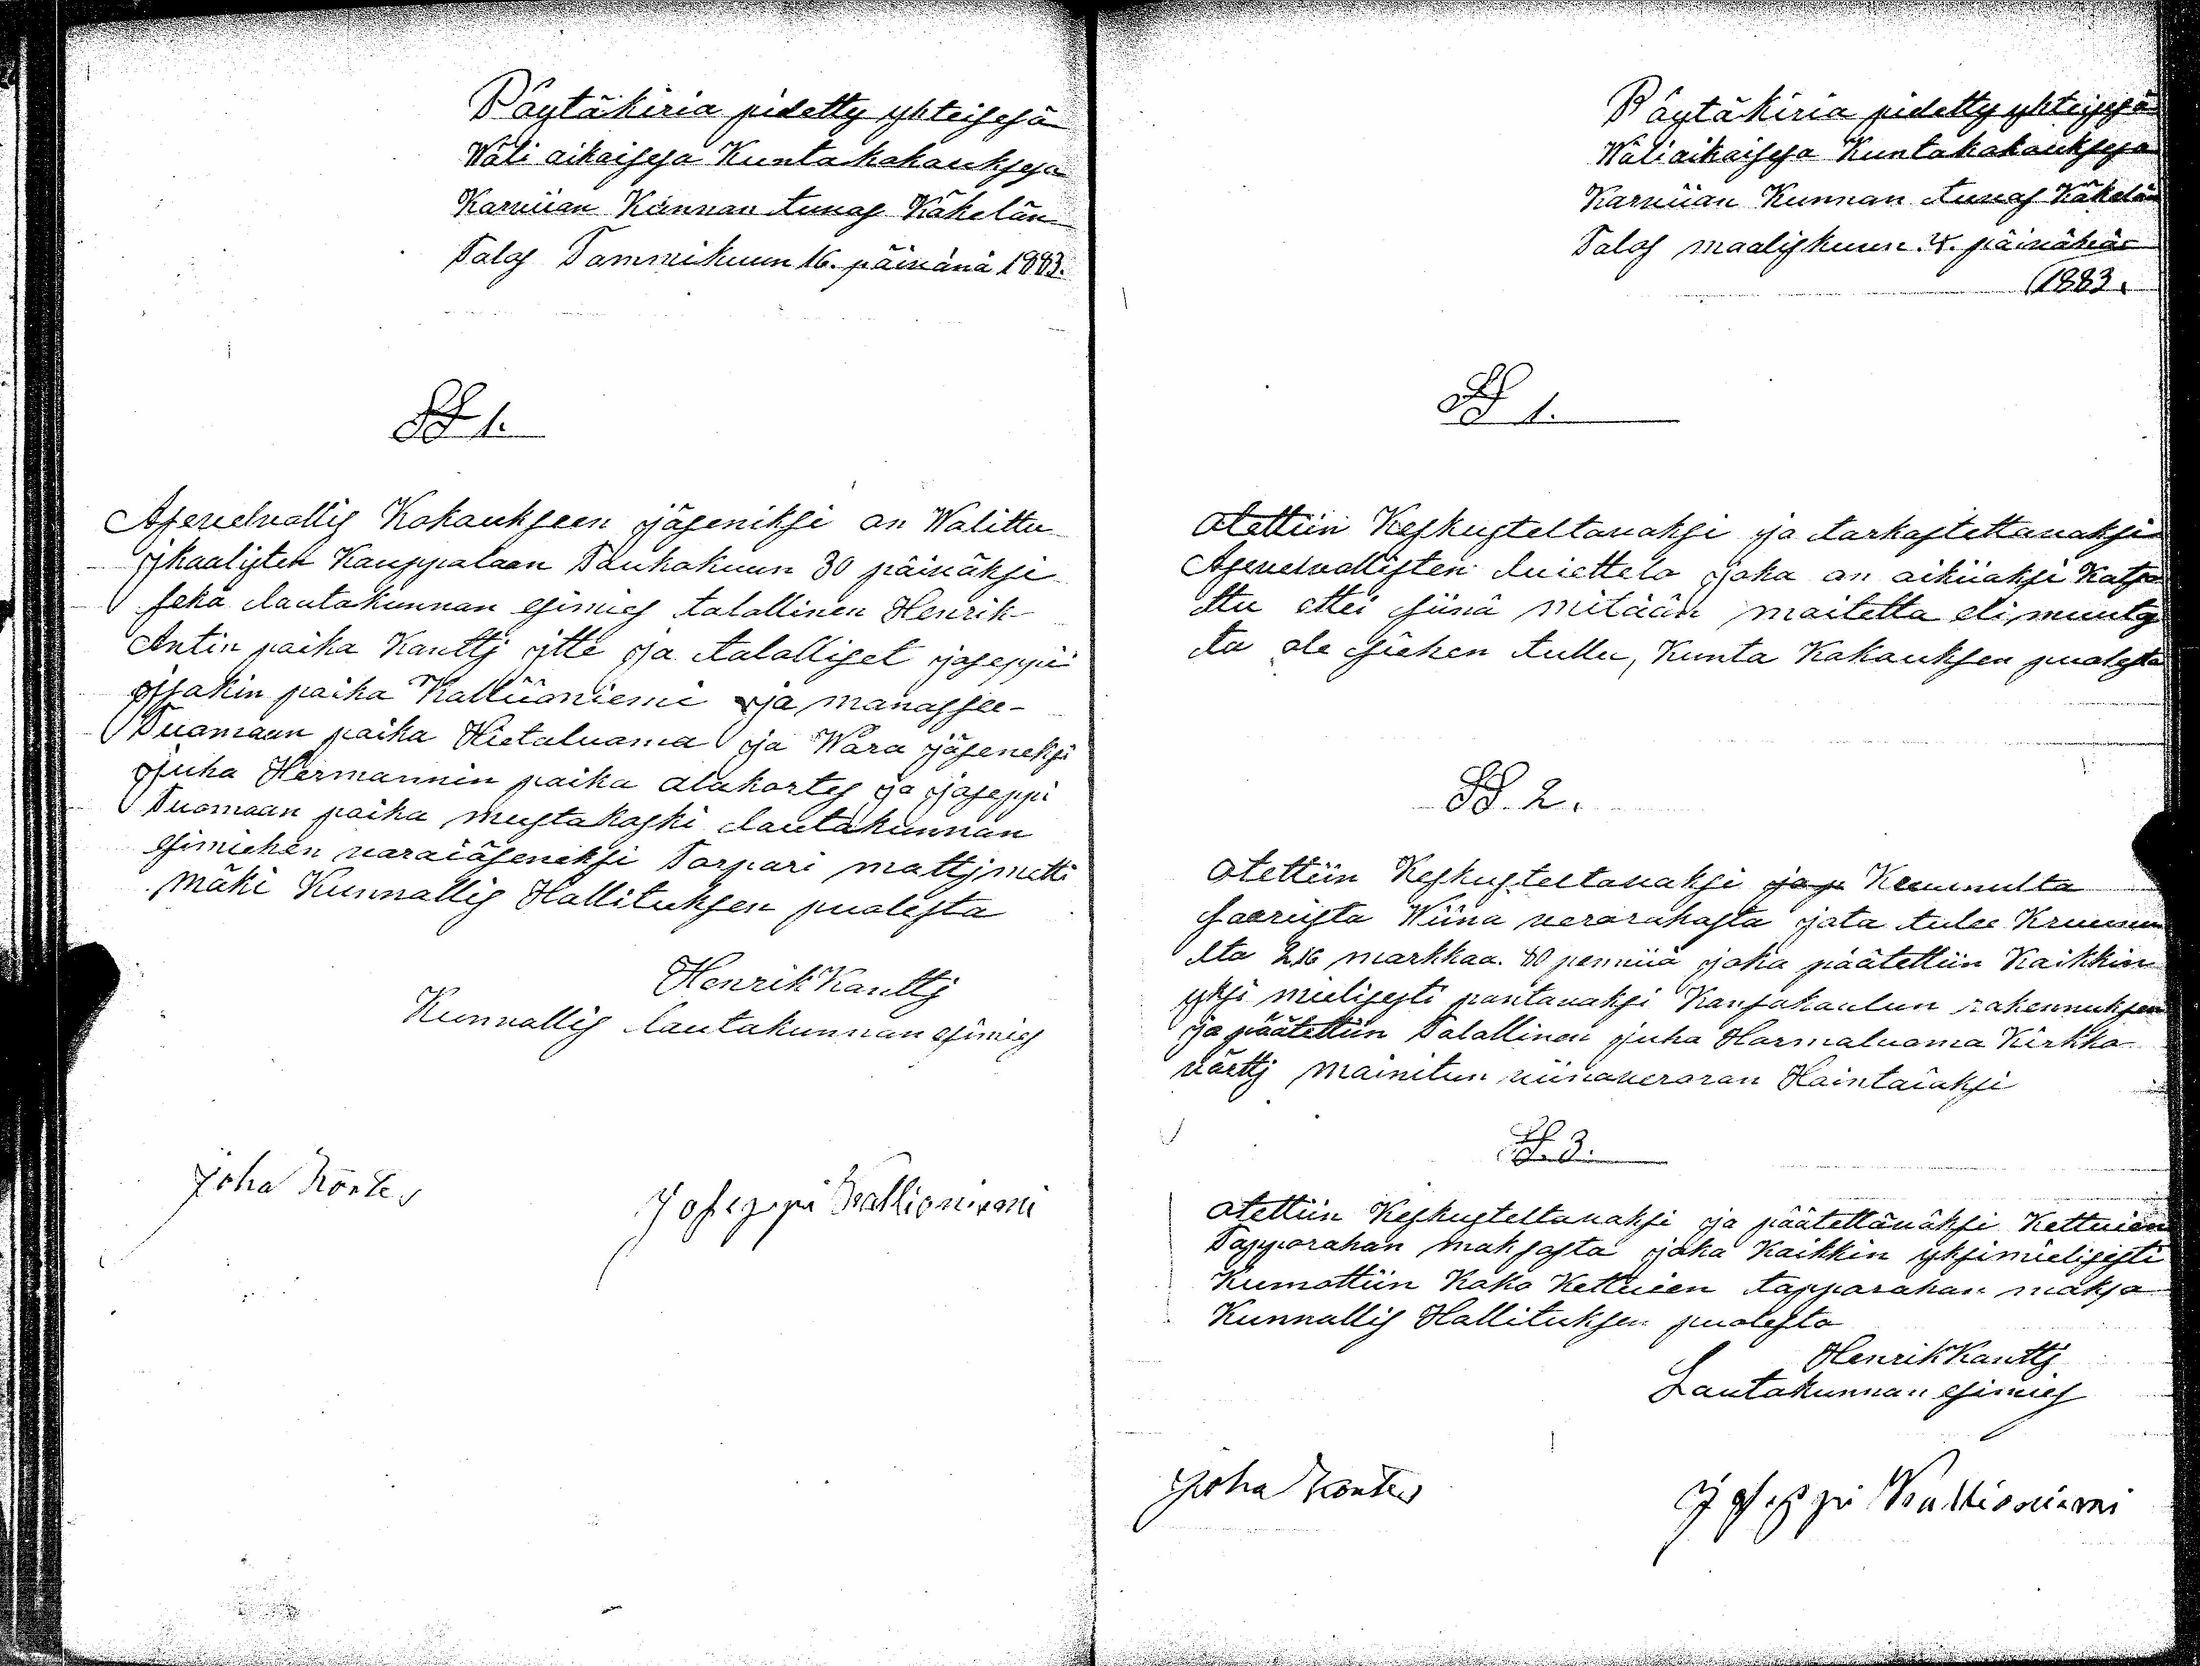 Pöytäkiria pidetty yhteisesä
Wäli aikaisesa Kuntakokouksesa
Karviian Kunnan tuvas Käkelän
Talos Tammikuun 16. päivänä 1883.
§§ 1.
Asevelvollis Kokoukseen jäseniksi on Walittu
ikaalisten Kauppalaan Toukokuun 30 päiväksi
sekä lautakunnan esimies talollinen Henrik
Antin poika Kantti itte ja talolliset joseppi
isakin poika Kalliioniemi ja manassee-
Tuomaan poika Hietaluoma ja Wara jäseneksi
juha Hermannin poika alakortes ja joseppi
Tuomaan poika mustakoski lautakunnan
esimiehen varaiäseneksi Torpari mattj mitti
mäki Kunnallis Hallituksen puolesta
Henrik Kantti
Kunnallis lautakunnan esimies
Joha Kortes
Joseppi Kallioniemi
Pöytäkiria pidetty yhteisesä
Wäliaikaisesa Kuntakokouksesa
Karviian Kunnan tuvas Käkelän
Talos maaliskuun 4. päivänä
1883.
§§ 1.
otettiin Keskusteltavaksi ja tarkastettavaksi
Asevelvollisten luiettelo joka on oikiiaksi Katso
ttu ettei siinä mitään moitetta eli muuta
ta ole siehen tullu, Kunta Kokouksen puolesta
§§. 2.
otettiin Keskusteltavaksi ja Kruunulta
saaruista Wiina verorahasta jota tulee Kruunu
lta 216 markkaa. 80 penniiä joka päätettiin Kaikkin
yksi mielisesti pantavaksi Kansakoulun rakennuksen
ja päätettiin Talollinen juha Harmaluoma Kirkko
värtti mainitun viinaveroran Hointaiaksi
§. 3.
otettiin Keskusteltavaksi ja päätettäväksi Kettuien
Tapporahan maksosta joka Kaikkin yksimielisesti
Kumottiin Koko Kettuien tapporahan makso
Kunnallis Hallituksen puolesta
Henrik Kantti
Lautakunnan esimies
Joha Kortes
Joseppi Kallioniemi